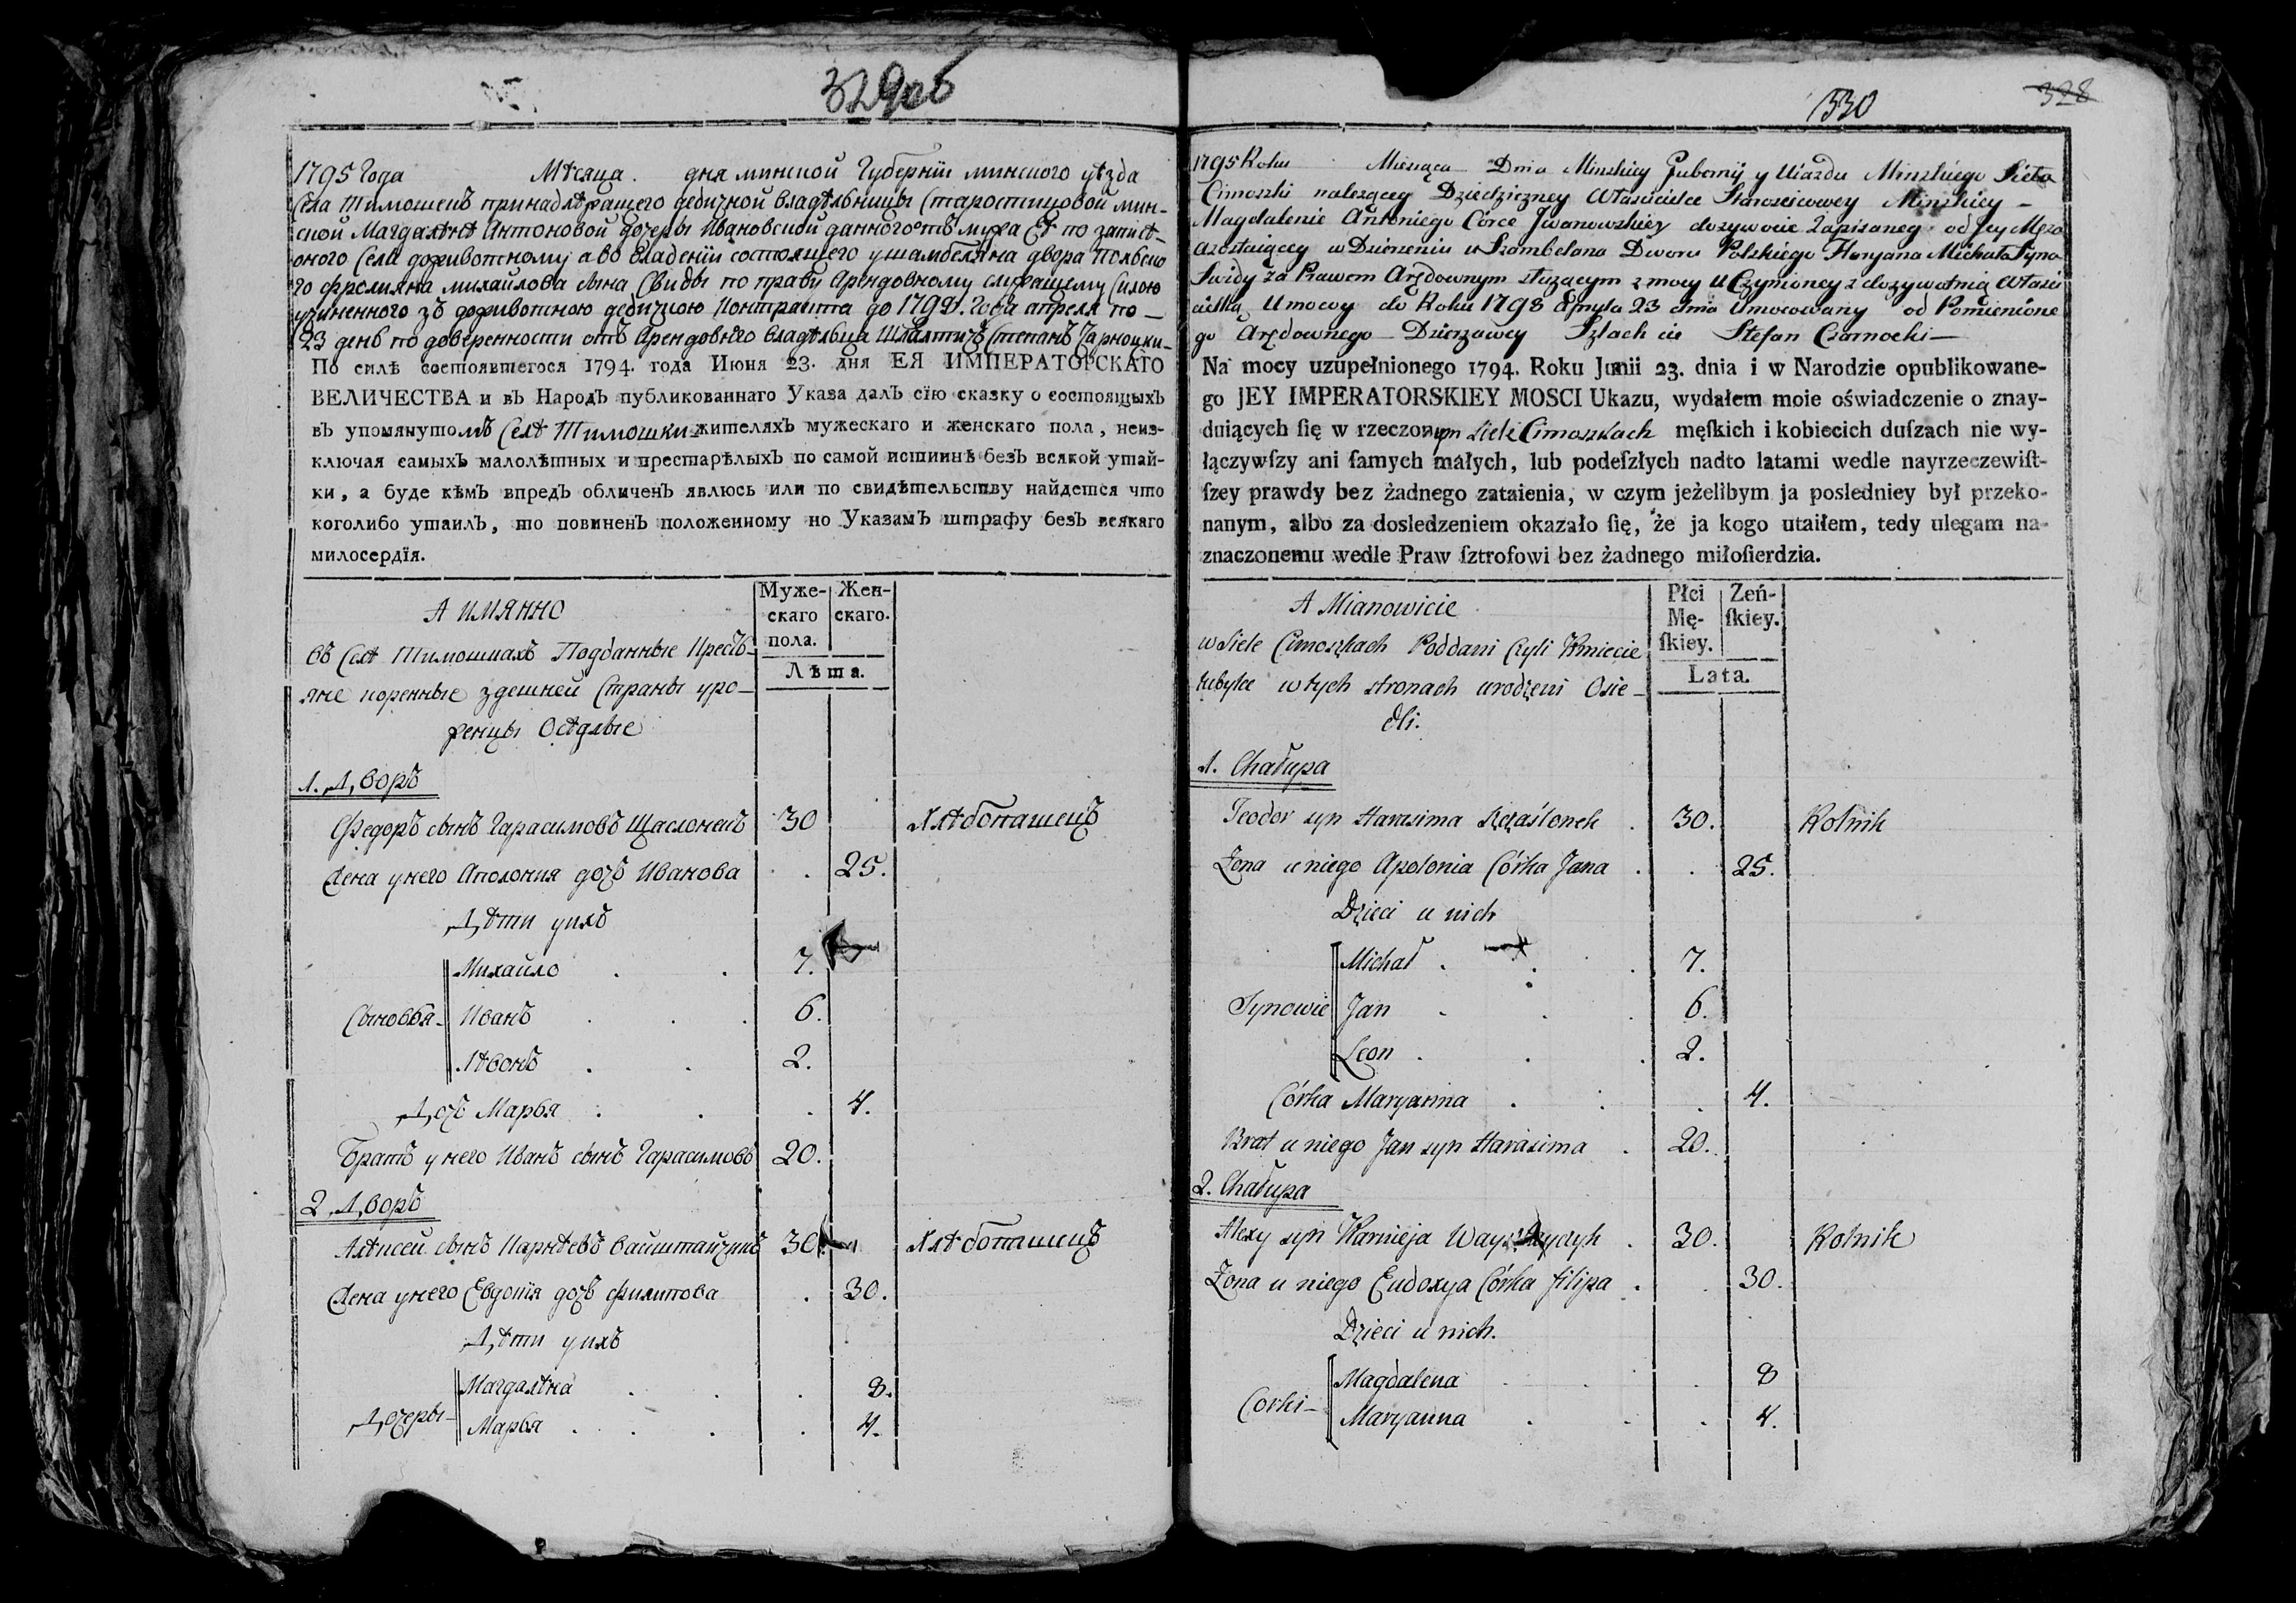 329об
1795 Года Мѣсяца. дня минской Губерніи минского уѣзда
Села Тимошекъ принадлежащего дедичной владѣльницы Старостицовой мин-
ской Магдалѣнѣ Антоновой дочеры Ивановской данного отъ мужа Еѣ по записѣ
оного Села доживотному а во владеніи состоящего у шамбеляна двора Польско
го Фролияна михайлова сына Свиды по праву Арендовному служащему Силою
учиненного зъ доживотною дедичкою Контракта до 1798. Года апреля по
23 день по доверенности отъ Арендовнего владѣльца Шляхтичъ Степанъ Чарноцки
По силѣ состоявшегося 1794. года Июня 23. дня ЕЯ ИМПЕРАТОРСКАГО
ВЕЛИЧЕСТВА и въ Народъ публикованнаго Указа далъ сїю сказку о состоящыхъ
въ упомянутомъ Селѣ Тимошки жителяхъ мужескаго и женскаго пола, неиз-
ключая самыхъ малолѣтныхъ и престарѣлыхъ по самой истиннѣ безъ всякой утай-
ки, а буде кѣмъ впредъ обличенъ явлюсь или по свидѣтельству найдется что
коголибо утаилъ, то повиненъ положенному но Указамъ штрафу безъ всякаго
милосердїя.
А имянно
Муже-
скаго
пола.
Жен-
скаго.
Лѣта.
въ Селѣ Тимошкахъ Подданные Кресть-
яне коренные здешней Страны уро-
женцы Осѣдлые
1. Дворъ
Федоръ сынъ Гарасимовъ Щаслонекъ 30 хлѣбопашецъ
Жена у него Аполония дочь Иванова . 25.
Дѣти у ихъ
Михайло . . 7.
Сыновья Иванъ . . . 6.
Лѣвонъ . . 2.
Дочь Марья . . . 4.
Братъ у него Иванъ сынъ Гарасимовъ 20.
2. Дворъ
Алѣксей сынъ Карнѣевъ вайштайчикъ 30. хлѣбопашецъ
Жена у него Евдокія дочь Филипова . 30.
Дѣти у ихъ
Магдалѣна . . . 8.
Дочеры Марья . . . . 4.
330 328
1795 Roku Miesiąca Dnia Minskiey Gubernij y Uiazdu Minskiego Sieła
Cimoszki należącey Dziedziczney Właścicielce Starościcowey Minskiey
Magdalenie Antoniego Córce Jwanowskiey dożywocie Zapisaneg od Jey Męża
azostaiącey w Dzierżeniu u Szambelana Dworu Polskiego Floryana Michała Syna
Swidy za Prawem Arędownym służącym z mocy Uczynioney z dożywotnią Właści
cielką Umowy do Roku 1798 Apryla 23 dnia Umocowany od Pomienione
go Arędownego Dzierżawcy Szlachcic Stefan Czarnocki
Na mocy uzupełnionego 1794. Roku Junii 23. dnia i w Narodzie opublikowane-
go JEY IMPERATORSKIEY MOSCI Ukazu, wydałem moie oświadczenie o znay-
duiących ſię w rzeczonym siele Cimoszkach męſkich i kobiecich duſzach nie wy-
łączywſzy ani ſamych małych, lub podeſzłych nadto latami wedle nayrzeczewiſt-
ſzey prawdy bez żadnego zataienia, w czym jeżelibym ja posledniey był przeko-
nanym, albo za dosledzeniem okazało ſię, że ja kogo utaiłem, tedy ulegam na-
znaczonemu wedle Praw ſztrofowi bez żadnego miłoſierdzia.
A Mianowicie
Płci
Mę-
ſkiey.
Zeń-
ſkiey.
Lata.
w Siele Cimoszkach Poddani Czyli Kmiecie
tubylce w tych stronach urodzeni Osie-
dli.
1. Chałupa
Teodor syn Harasima Szczaślonek . 30. Rolnik
Żona u niego Apolonia Córka Jana . . 25.
Dzieci u nich
Michał . . . 7.
Synowie Jan . . . 6.
Leon . . . 2.
Córka Maryanna . . . 4.
Brat u niego Jan syn Harasima . 20.
2. Chałupa
Alexy syn Karnieja . 30. Rolnik
Żona u niego Eudoxya Córka filipa . . 30.
Dzieci u nich.
Magdalena . . . 8
Corki Maryanna . . . 4.